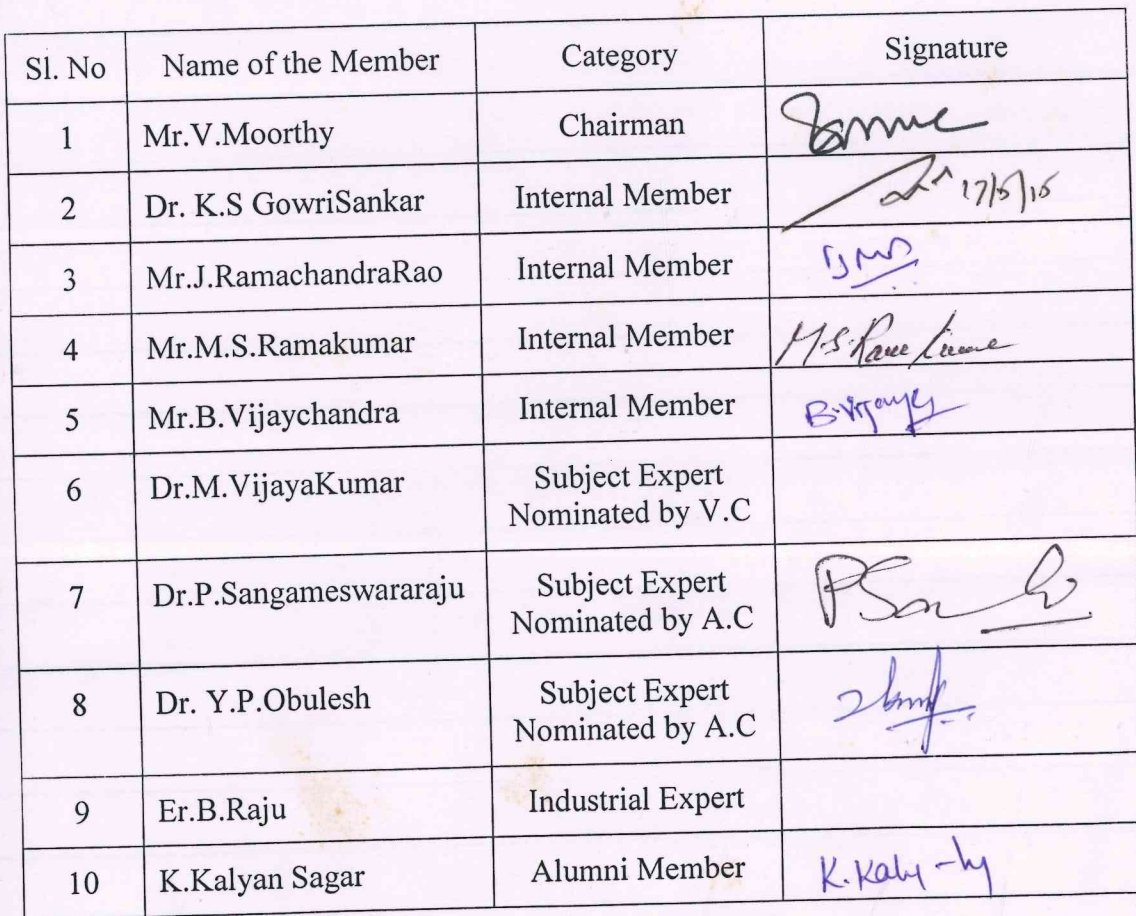 Sl. No Name of the Member Category Signature
1 Mr.V.Moorthy Chairman
2 Dr. K.S GowriSankar Internal Member 17/5/15
3 Mr.J.RamachandraRao Internal Member
4 Mr.M.S.Ramakumar Internal Member M.S.Rama kumar
5 Mr.B.Vijaychandra Internal Member
6 Dr.M.VijayaKumar Subject Expert
Nominated by V.C
7 Dr.P.Sangameswararaju Subject Expert
Nominated by A.C
8 Dr. Y.P.Obulesh Subject Expert
Nominated by A.C
9 Er.B.Raju Industrial Expert
10 K.Kalyan Sagar Alumni Member